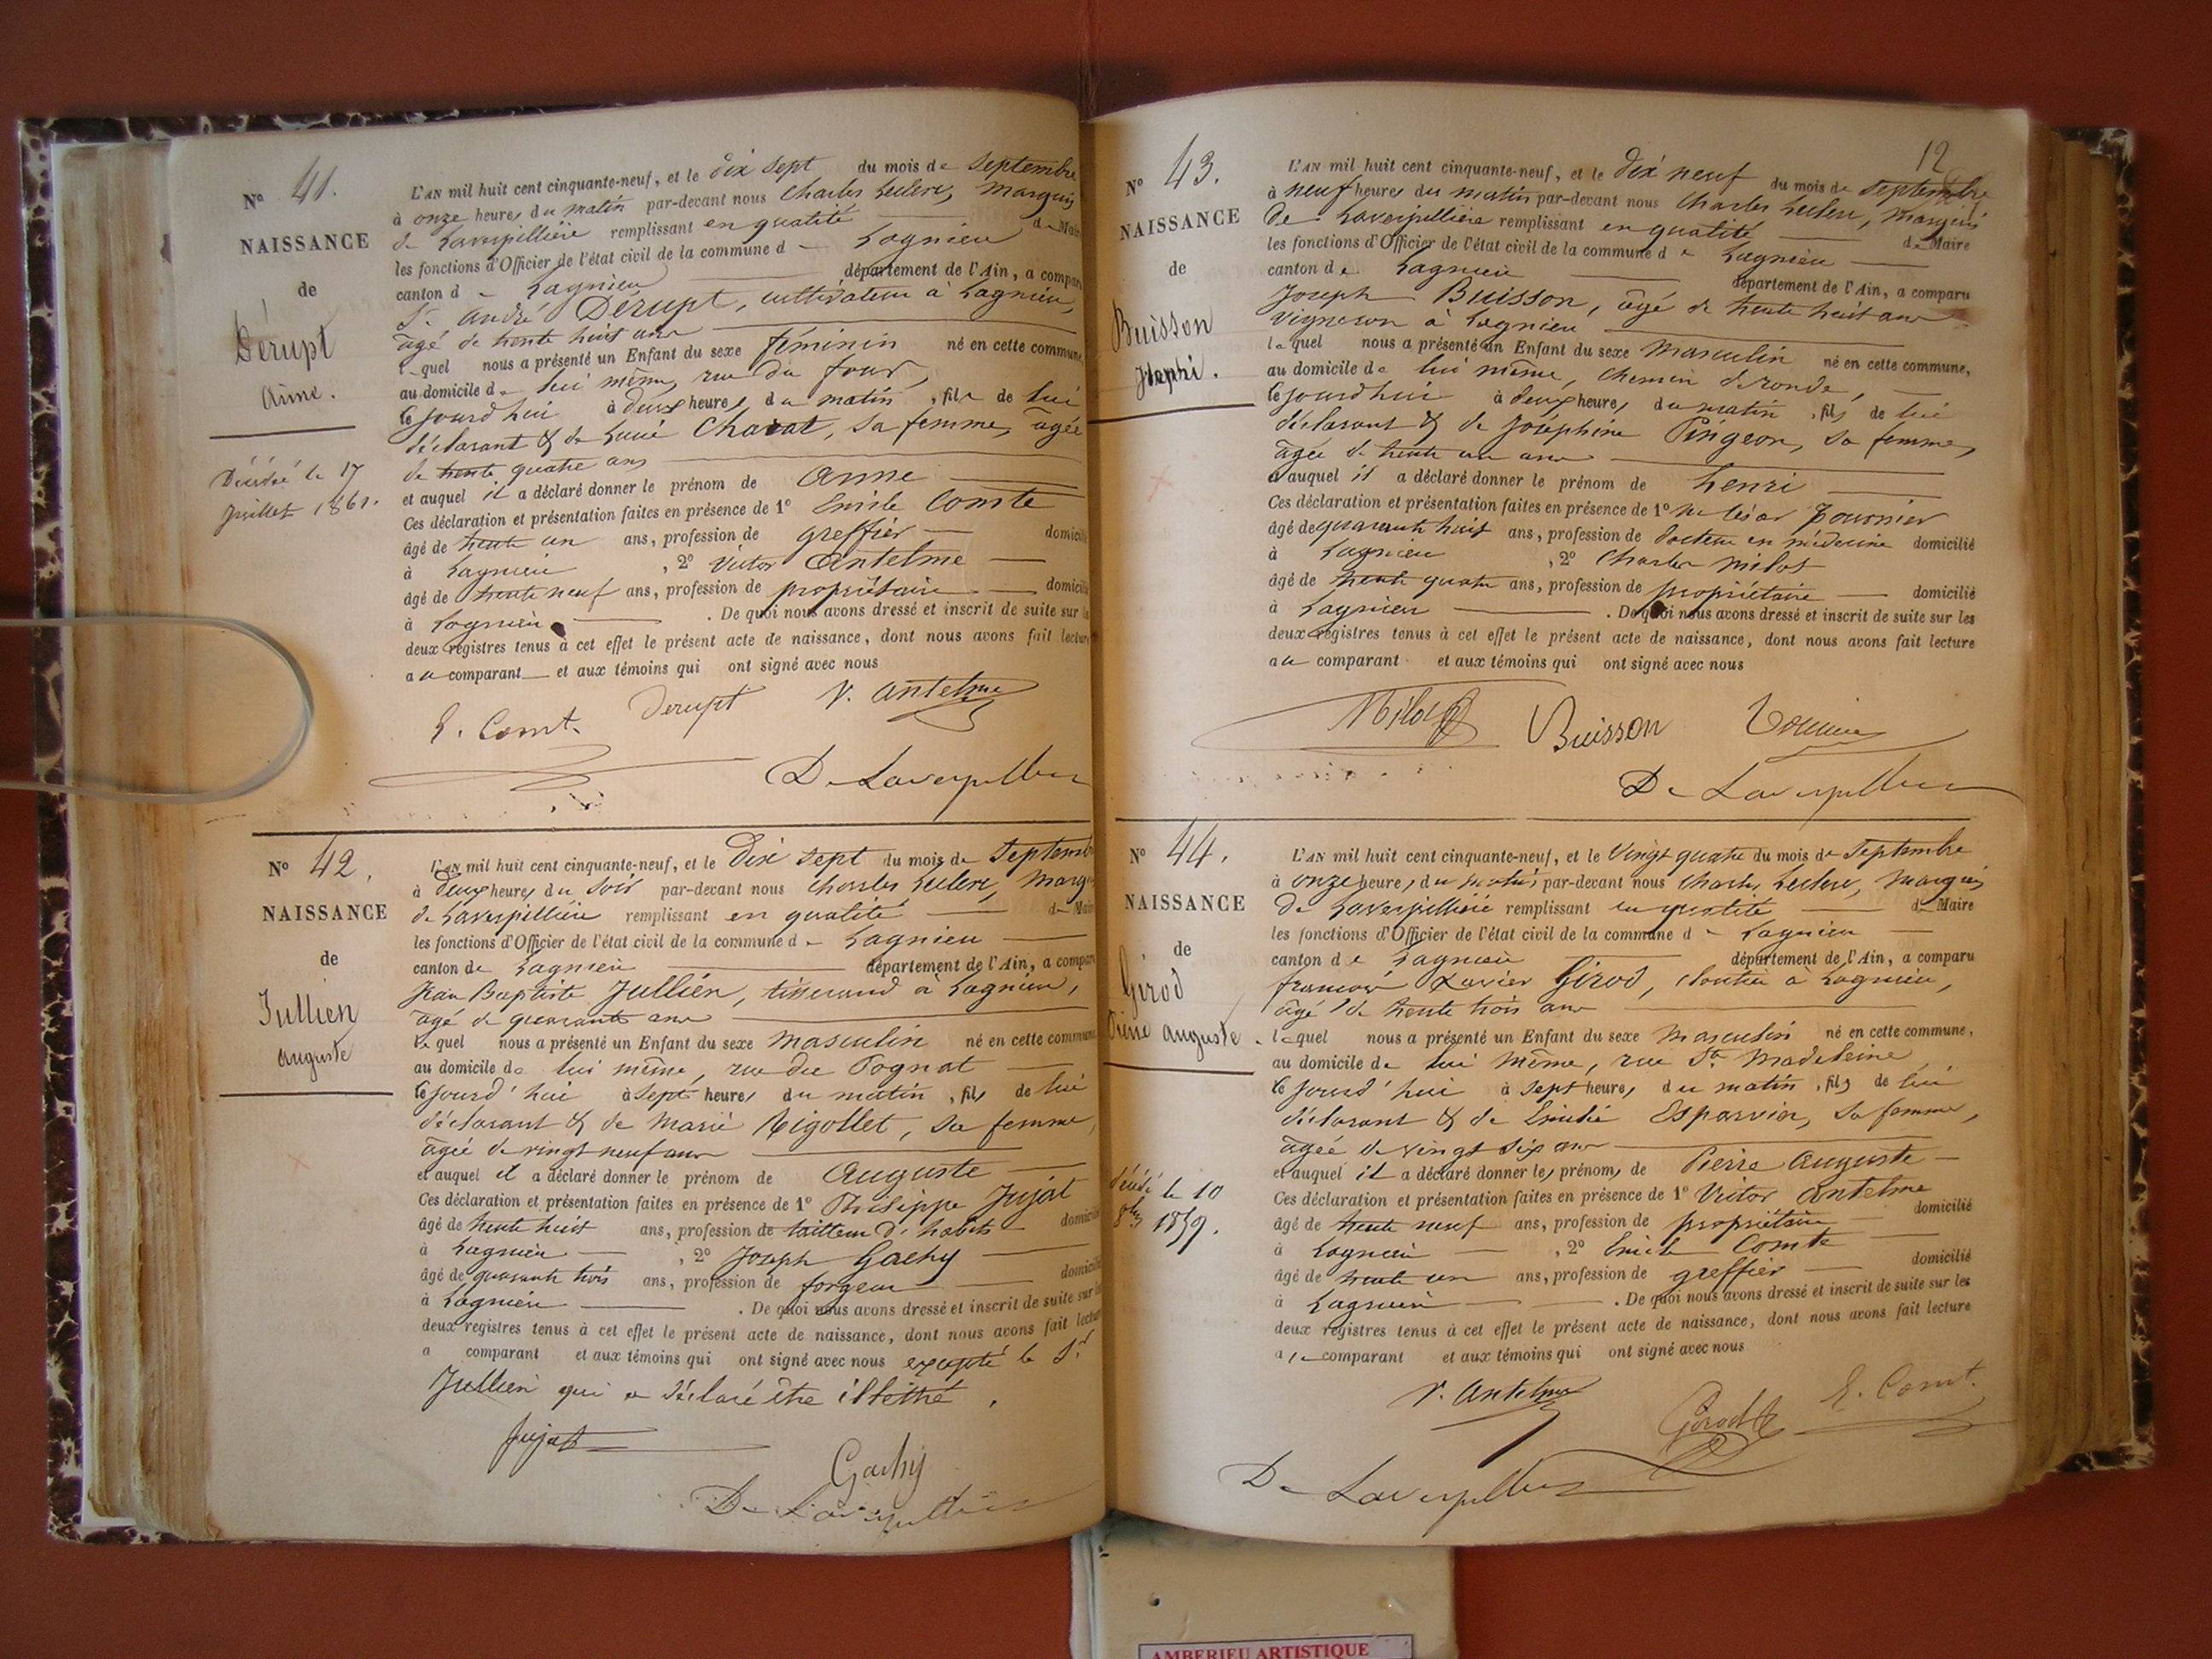 N° 41.
NAISSANCE
de
Dérupt
Anne.
Décédée le 17
juillet 1861.
L'AN mil huit cent cinquante-neuf, et le dix sept du mois de Septembre
à onze heures du matin par-devant nous Charles Leclerc, Marquis
de Laverpillière remplissant en qualité de Maire
les fonctions d'Officier de l'état civil de la commune de Lagnieu
canton de Lagnieu département de l'Ain, a comparu
Sr. André Dérupt, cultivateur à Lagnieu,
âgé de trente huit ans
lequel nous a présenté un Enfant du sexe féminin né en cette commune
au domicile de lui même, rue du four,
cejourd'hui à deux heures du matin, fille de lui
déclarant & de Lucie Charat, sa femme, âgée
de trente quatre ans
et auquel il a déclaré donner le prénom de Anne
Ces déclaration et présentation faites en présence de 1° Emile Comte
âgé de trente un ans, profession de greffier domicilié
à Lagnieu, 2° Victor Antelme
âgé de trente neuf ans, profession de propriétaire domicilié
à Lagnieu. De quoi nous avons dressé et inscrit de suite sur les
deux registres tenus à cet effet le présent acte de naissance, dont nous avons fait lecture
au comparant et aux témoins qui ont signé avec nous
E. Comt. Derupt V. Antelme
De Laverpillière
N° 42.
NAISSANCE
de
Jullien
Auguste
L'AN mil huit cent cinquante-neuf, et le Dix sept du mois de Septembre
à deux heures du soir par-devant nous Charles Leclerc, Marquis
de Laverpillière remplissant en qualité de Maire
les fonctions d'Officier de l'état civil de la commune de Lagnieu
canton de Lagnieu département de l'Ain, a comparu
Jean Baptiste Jullien, tisserand à Lagnieu,
âgé de quarante ans
lequel nous a présenté un Enfant du sexe masculin né en cette commune
au domicile de lui même, rue du Pognat
cejourd'hui à sept heures du matin, fils de lui
déclarant & de Marie Rigollet, sa femme,
âgée de vingt neuf ans
et auquel il a déclaré donner le prénom de Auguste
Ces déclaration et présentation faites en présence de 1° Philippe Jujat
âgé de trente huit ans, profession de tailleur d'habits domicilié
à Lagnieu, 2° Joseph Gachy
âgé de quarante trois ans, profession de forgeur domicilié
à Lagnieu. De quoi nous avons dressé et inscrit de suite sur les
deux registres tenus à cet effet le présent acte de naissance, dont nous avons fait lecture
a comparant et aux témoins qui ont signé avec nous excepté le Sr
Jullien qui a déclaré être illettré.
Jujat
Gachy
De Laverpillière
12
N° 43.
NAISSANCE
de
Buisson
L'AN mil huit cent cinquante-neuf, et le Dix neuf du mois de Septembre
à neuf heures du matin par-devant nous Charles Leclerc, Marquis
de Laverpillière remplissant en qualité de Maire
les fonctions d'Officier de l'état civil de la commune de Lagnieu
canton de Lagnieu département de l'Ain, a comparu
Joseph Buisson, âgé de trente huit ans
vigneron à Lagnieu
lequel nous a présenté un Enfant du sexe Masculin né en cette commune,
au domicile de lui même, chemin de ronde,
cejourd'hui à deux heures du matin, fils de lui
déclarant & de Joséphine Pingeon, sa femme,
âgée de trente un ans
et auquel il a déclaré donner le prénom de henri
Ces déclaration et présentation faites en présence de 1° Mr César
âgé de quarante huit ans, profession de docteur en médecine domicilié
à Lagnieu, 2° Charles Milot
âgé de trente quatre ans, profession de propriétaire domicilié
à Lagnieu. De quoi nous avons dressé et inscrit de suite sur les
deux registres tenus à cet effet le présent acte de naissance, dont nous avons fait lecture
au comparant et aux témoins qui ont signé avec nous
Milot Buisson
De Laverpillière
N° 44.
NAISSANCE
de
Girod
Pierre Auguste.
décédé le 10
8bre 1859.
L'AN mil huit cent cinquante-neuf, et le Vingt quatre du mois de Septembre
à onze heures du matin par-devant nous Charles Leclerc, Marquis
De Laverpillière remplissant en qualité de Maire
les fonctions d'Officier de l'état civil de la commune de Lagnieu
canton de Lagnieu département de l'Ain, a comparu
françois Xavier Girod, cloutier à Lagnieu,
âgé de trente trois ans
lequel nous a présenté un Enfant du sexe Masculin né en cette commune,
au domicile de lui même, rue Ste Madeleine
cejourd'hui à sept heures du matin, fils de lui
déclarant & de Emilie Esparvier, sa femme,
âgée de vingt six ans
et auquel il a déclaré donner les prénoms de Pierre Auguste
Ces déclaration et présentation faites en présence de 1° Victor Antelme
âgé de trente neuf ans, profession de propriétaire domicilié
à Lagnieu, 2° Emile Comte
âgé de trente un ans, profession de greffier domicilié
à Lagnieu. De quoi nous avons dressé et inscrit de suite sur les
deux registres tenus à cet effet le présent acte de naissance, dont nous avons fait lecture
au comparant et aux témoins qui ont signé avec nous
V. Antelme Girod E. Comt.
De Laverpillière
AMBERIEU ARTISTIQUE